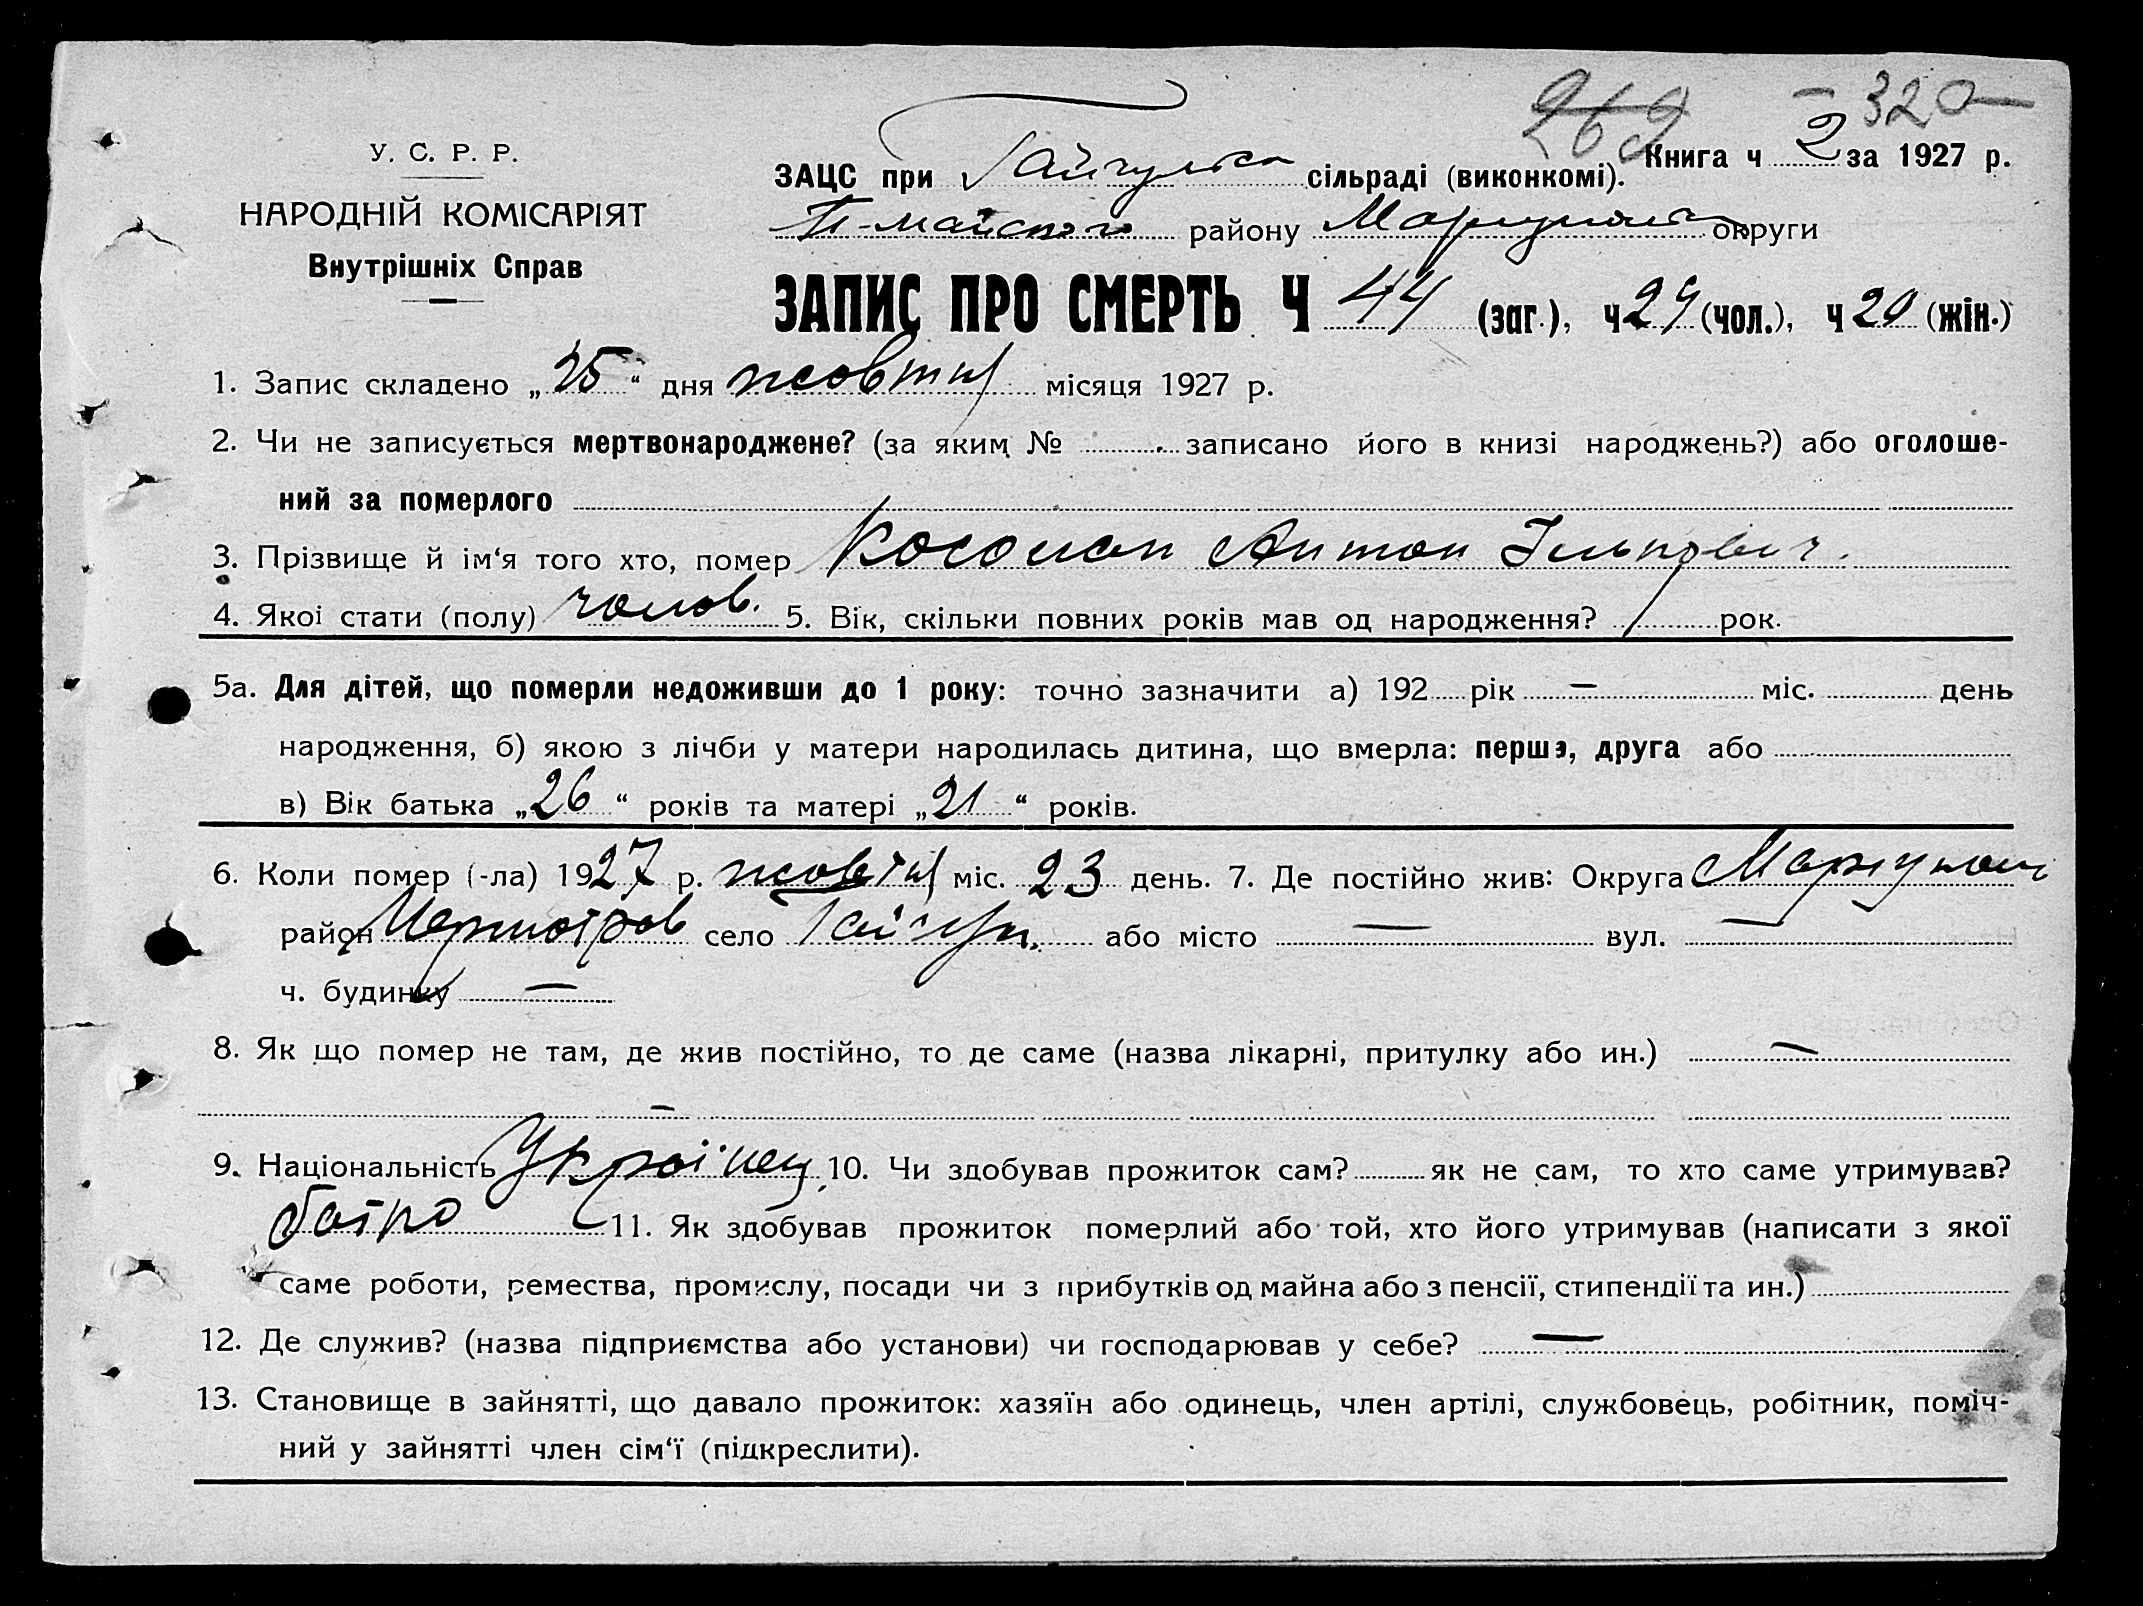 269 – 320
У. С. Р. Р.
НАРОДНІЙ КОМІСАРІЯТ
Внутрішніх Справ
Книга ч 2 за 1927 р.
ЗАЦС при сільраді (виконкомі).
П-майського району округи
ЗАПИС ПРО СМЕРТЬ Ч 44 (заг.), ч 24 (чол.), ч 20 (жін.)
1. Запис складено „25“ дня жовтня місяця 1927 р.
2. Чи не записується мертвонароджене? (за яким № записано його в книзі народжень?) або оголоше-
ний за померлого
3. Прізвище й ім‘я того хто, помер Антон
4. Якої стати (полу) чолов. 5. Вік, скільки повних років мав од народження? 1 рок.
5а. Для дітей, що померли недоживши до 1 року: точно зазначити а) 192 рік — міс. день
народження, б) якою з лічби у матери народилась дитина, що вмерла: перша, друга або
в) Вік батька „26“ років та матері „21“ років.
6. Коли помер (-ла) 1927 р. жовтня міс. 23 день. 7. Де постійно жив: Округа
район село Гайчур. або місто — вул. —
ч. будинку —
8. Як що помер не там, де жив постійно, то де саме (назва лікарні, притулку або ин.) —
—
9. Національність Українец 10. Чи здобував прожиток сам? як не сам, то хто саме утримував?
батько 11. Як здобував прожиток померлий або той, хто його утримував (написати з якої
саме роботи, ремества, промислу, посади чи з прибутків од майна або з пенсії, стипендії та ин.)
12. Де служив? (назва підприємства або установи) чи господарював у себе? —
13. Становище в зайнятті, що давало прожиток: хазяїн або одинець, член артілі, службовець, робітник, поміч-
ний у зайнятті член сім‘ї (підкреслити).